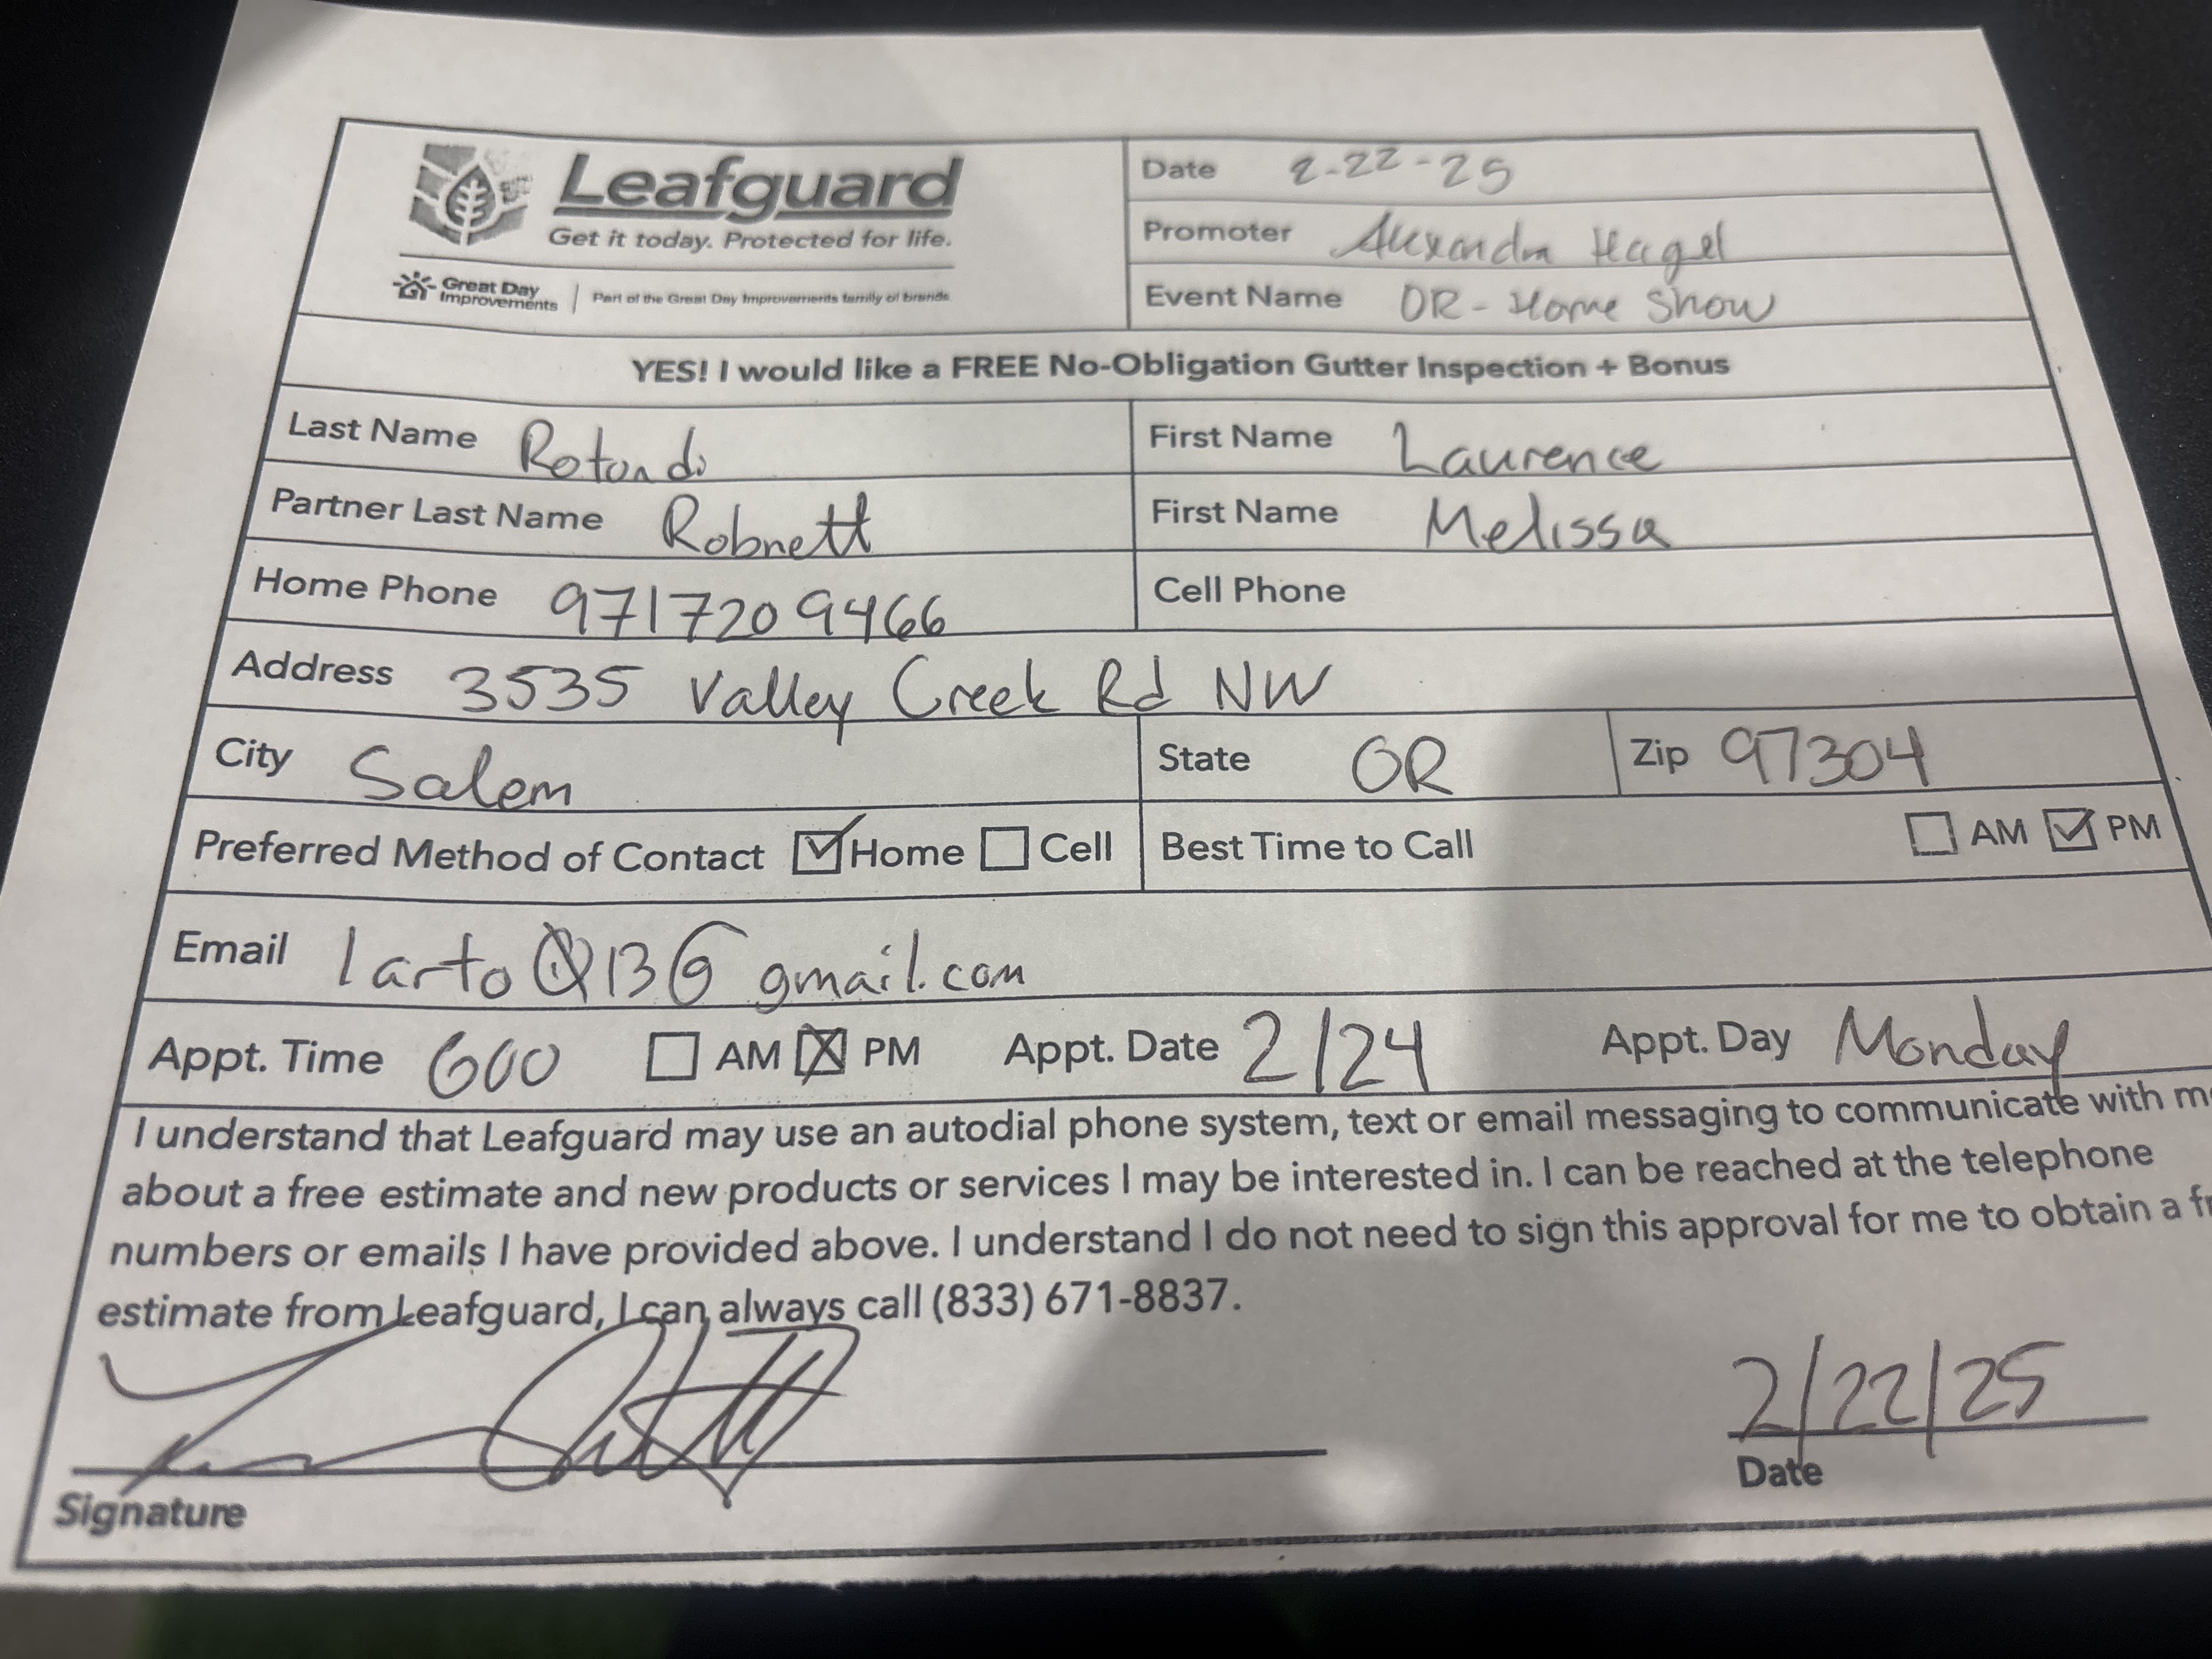 Leafguard
Get it today. Protected for life.
Great Day Improvements | Part of the Great Day Improvements family of brands
Date 2-22-25
Promoter Hagel
Event Name OR-Home Show
YES! I would like a FREE No-Obligation Gutter Inspection + Bonus
Last Name Rotondi First Name Laurence
Partner Last Name Robnett First Name Melissa
Home Phone 971 720 9466 Cell Phone
Address 3535 Valley Creek Rd NW
City Salem State OR Zip 97304
Preferred Method of Contact ☑ Home ☐ Cell Best Time to Call ☐ AM ☑ PM
Email gmail.com
Appt. Time 600 ☐ AM ☒ PM Appt. Date 2/24 Appt. Day Monday
I understand that Leafguard may use an autodial phone system, text or email messaging to communicate with me
about a free estimate and new products or services I may be interested in. I can be reached at the telephone
numbers or emails I have provided above. I understand I do not need to sign this approval for me to obtain a
estimate from Leafguard, I can always call (833) 671-8837.
2/22/25
Signature Date